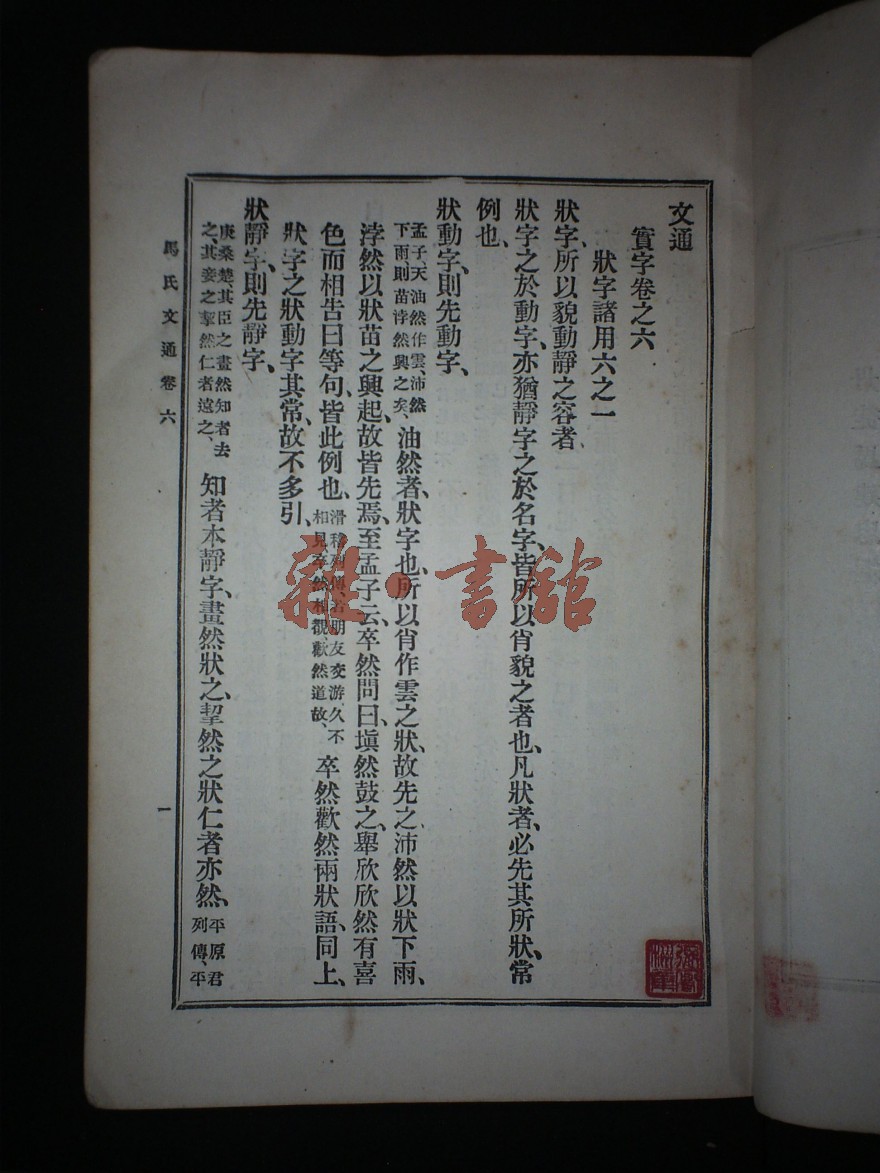 文通
實字卷之六
狀字諸用六之一
狀字、所以貌動靜之容者、
狀字之於動字、亦猶靜字之於名字、皆所以肖貌之者也、凡狀者、必先其所狀、常
例也、
狀動字、則先動字、
孟子、天油然作雲、沛然
下雨、則苗浡然興之矣、
油然者、狀字也、所以肖作雲之狀、故先之、沛然以狀下雨、
浡然以狀苗之興起、故皆先焉、至孟子云、卒然問曰、塡然鼓之、舉欣欣然有喜
色而相告曰等句、皆此例也、
滑稽列傳、若朋友交游、久不
相見、卒然相覩、歡然道故、
卒然歡然兩狀語、同上、
狀字之狀動字其常、故不多引、
狀靜字、則先靜字、
庚桑楚、其臣之畫然知者去
之、其妾之挈然仁者遠之、
知者本靜字、畫然狀之、挈然之狀仁者亦然、
平原君
列傳、平
馬氏文通 卷六
一
雜·書館